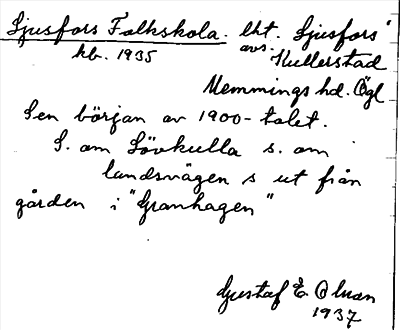 Ljusfors Folkskola. lht. Ljusfors
kb. 1935 avs. Kullerstad
Memmings hd. Ögl
Sen början av 1900-talet.
S. om Lövkulla s. om
landsvägen s ut från
gården i "Granhagen"
Gustaf E. Olman
1937